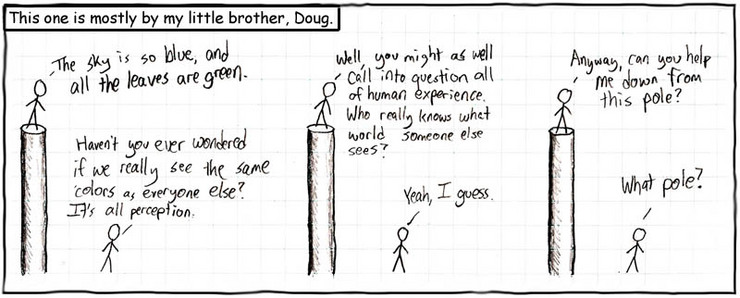 This one is mostly by my little brother, Doug.
The sky is so blue, and
all the leaves are green.
Haven't you ever wondered
if we really see the same
colors as everyone else?
It's all perception.
Well, you might as well
call into question all
of human experience.
Who really knows what
world someone else
sees?
Yeah, I guess.
Anyway, can you help
me down from
this pole?
What pole?